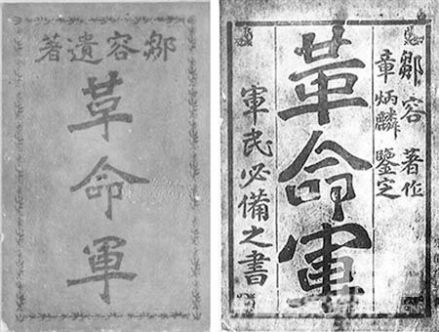 鄒容遺著
革命軍
鄒容著作
章炳麟鑒定
革命軍
軍民必備之書